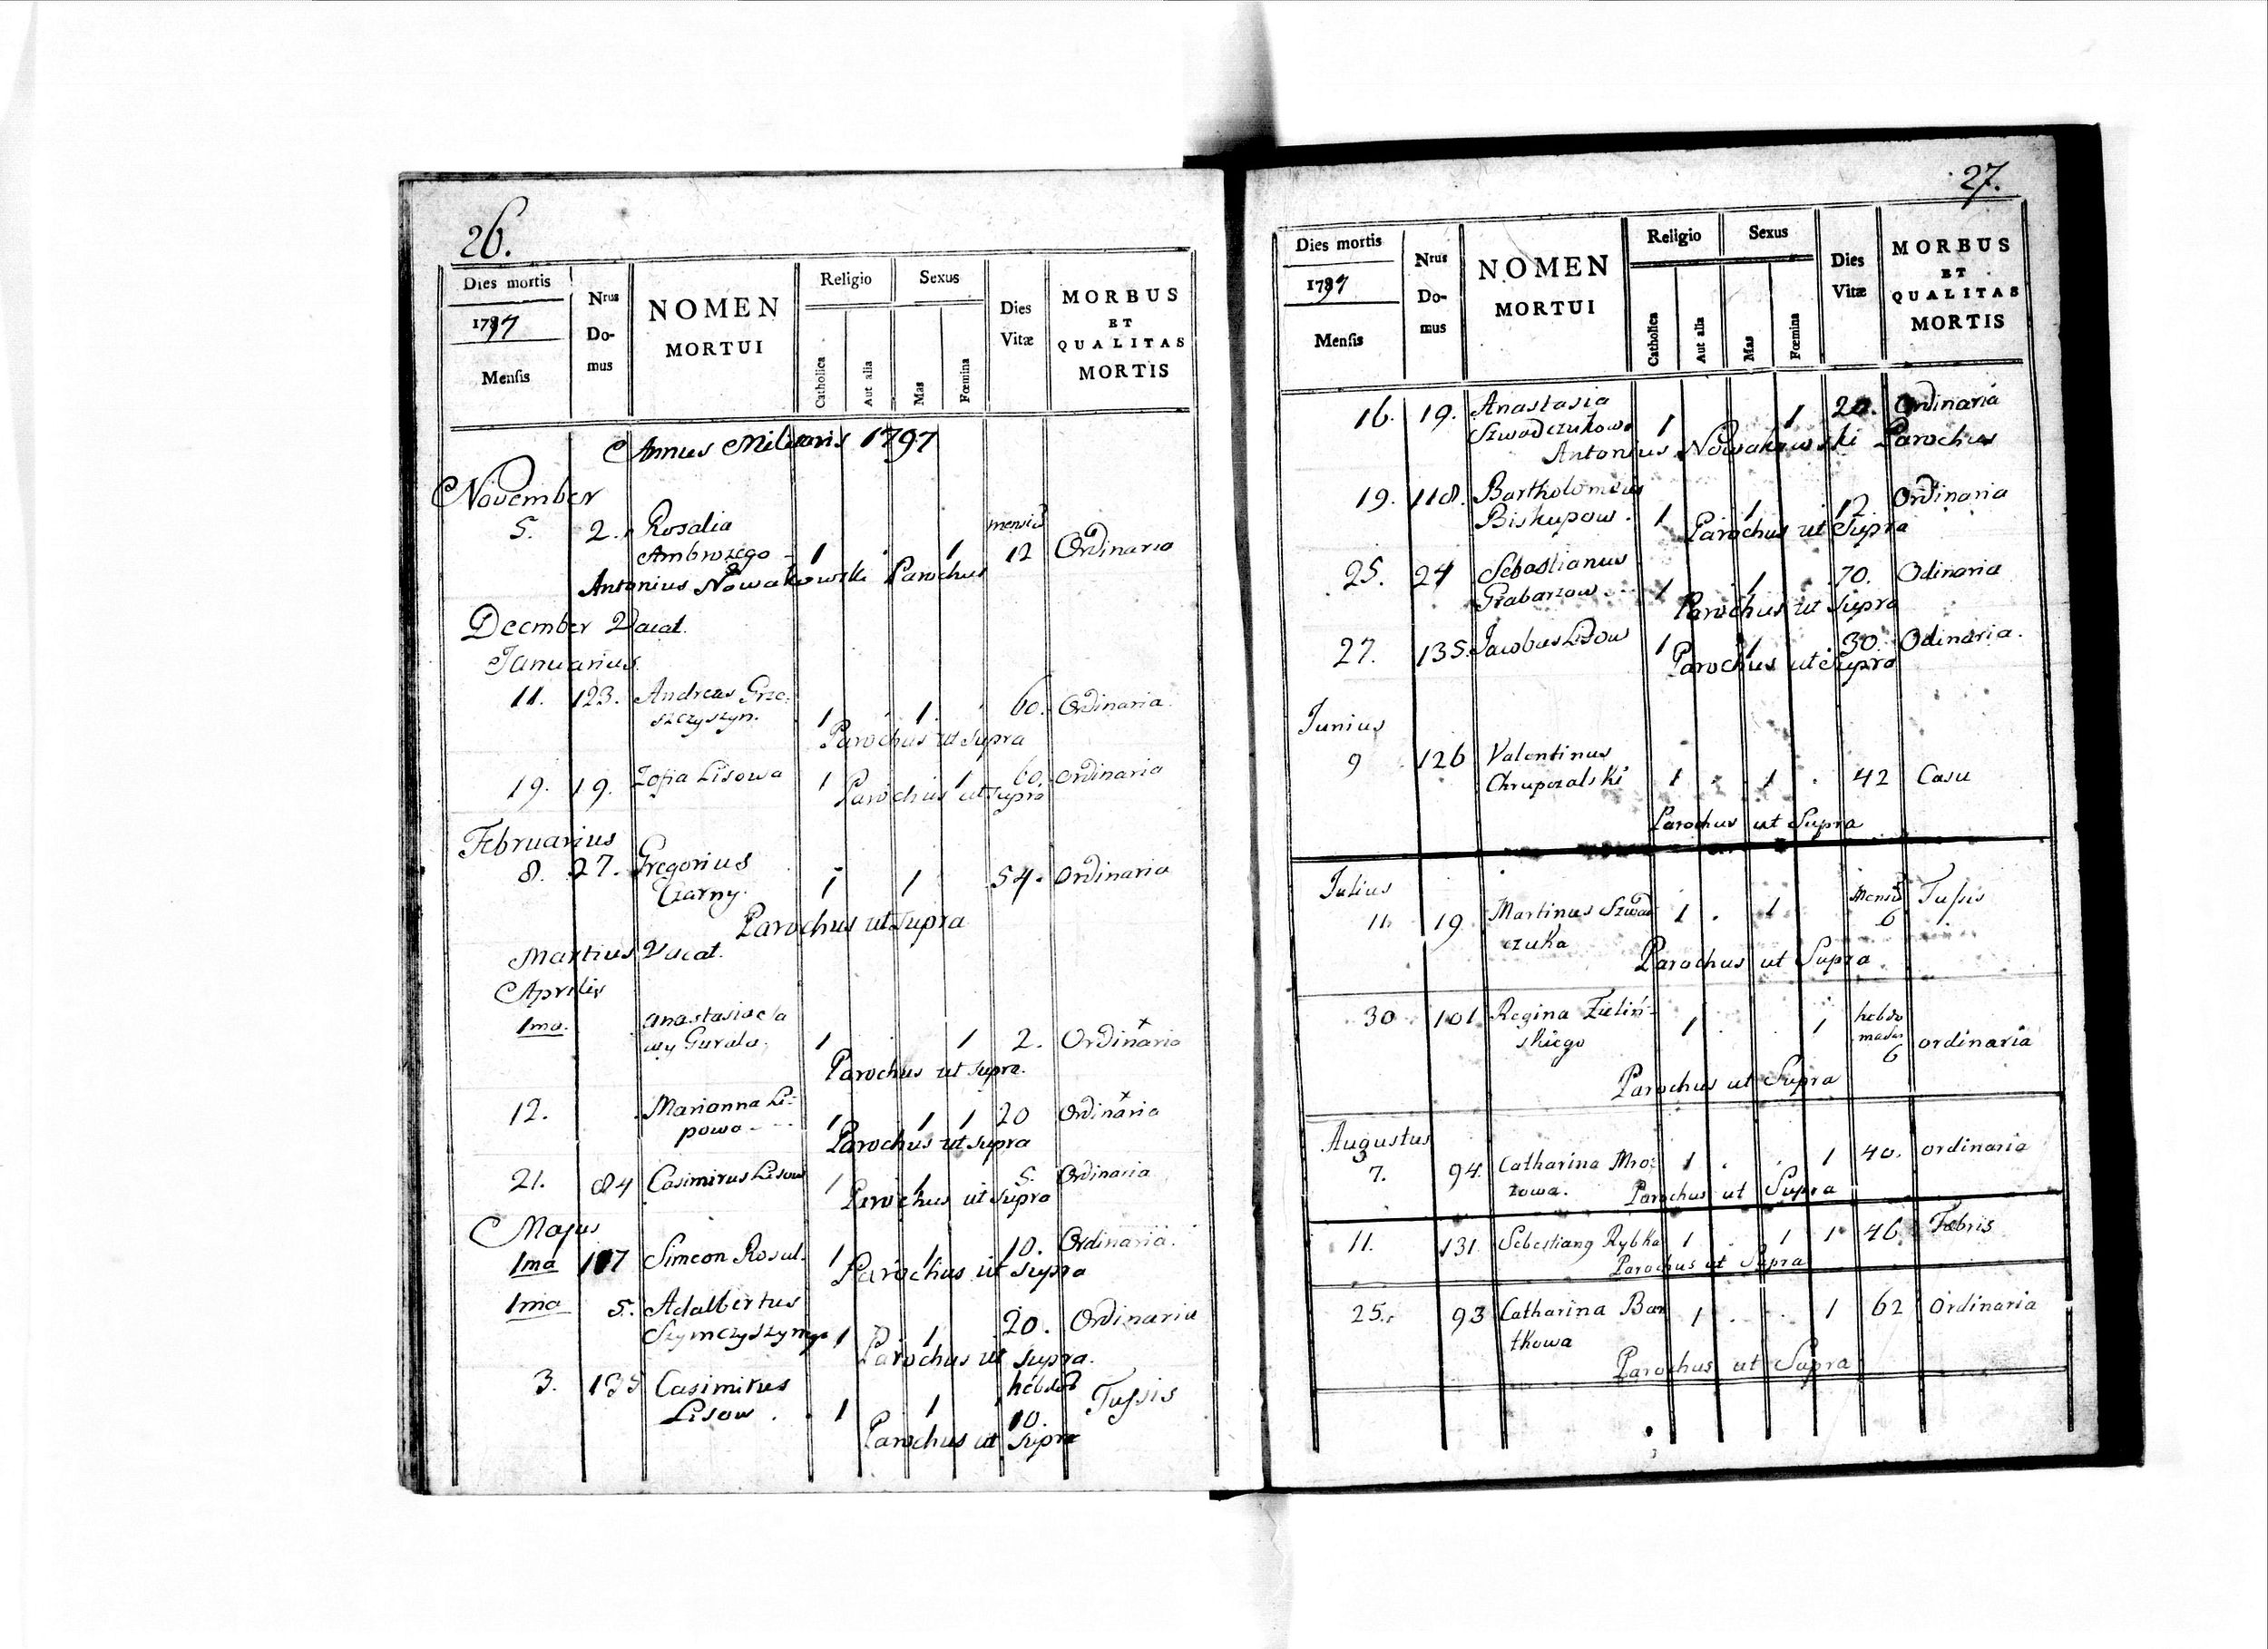 26.
Dies mortis
1797
Mensis
Nrus Do-mus
NOMEN MORTUI
Religio
Catholica
Aut alia
Sexus
Mas
Fœmina
Dies Vitæ
MORBUS ET QUALITAS MORTIS
Annus Militaris 1797
November
mensis
5. 2. Rosalia
Ambrozego - 1 1 12 Ordinaria
Antonius Nowakowski Parochus
Decmber Vacat.
Januarius
11. 123. Andreas Grze:
szczyszyn. 1 1. 60. Ordinaria.
Parochus ut Supra
19. 19. Zofia Lisowa 1 1 60. Ordinaria
Parochus ut Supra
Februarius
8. 27. Gregorius
Czarny. 1 1 54. Ordinaria
Parochus ut Supra
Martius Vacat.
Aprilis
1ma. Anastasia
Gurala. 1 1 2. Ordinaria
Parochus ut Supra.
12. Marianna Li-
powa 1 1 1 20 Ordinaria
Parochus ut Supra
21. 84 Casimirus Lisow 1 1 5. Ordinaria
Parochus ut Supra
Majus
1ma 107 Simeon Rosul. 1 1 10. Ordinaria.
Parochus ut Supra
1ma 5. Adalbertus
Szymczyszyn 1 1 20. Ordinaria
Parochus ut Supra.
3. 135 Casimirus hebdo
Lisow. 1 1 10. Tussis
Parochus ut Supra
27.
Dies mortis
1797
Mensis
Nrus Do-mus
NOMEN MORTUI
Religio
Catholica
Aut alia
Sexus
Mas
Fœmina
Dies Vitæ
MORBUS ET QUALITAS MORTIS
16. 19. Anastasia
Szwadczukowa 1 1 20. Ordinaria
Antonius Nowakowski Parochus
19. 118. Bartholomeus
Biskupow. 1 1 12. Ordinaria
Parochus ut Supra
25. 24 Sebastianus
Grabarzow 1 1 70. Odinaria
Parochus ut Supra
27. 135. Jacobus Lisow 1 1 30. Odinaria.
Parochus ut Supra
Junius
9 126 Valentinus
Chrupczalski 1 . 1 . 42 Casu
Parochus ut Supra
Julius
11. 19 Martinus Szwad 1 . 1 Mensis 6 Tussis
czuka
Parochus ut Supra
30 101 Regina Zieliń-
skiego 1 . . 1 hebdo
madas 6 ordinaria
Parochus ut Supra
Augustus
7. 94. Catharina Mro: 1 . . 1 40. ordinaria
zowa. Parochus ut Supra
11. 131 Sebestiang Rybka 1 . 1 1 46 Febris
Parochus ut Supra
25. 93 Catharina Bar 1 . . 1 62 Ordinaria
tkowa
Parochus ut Supra